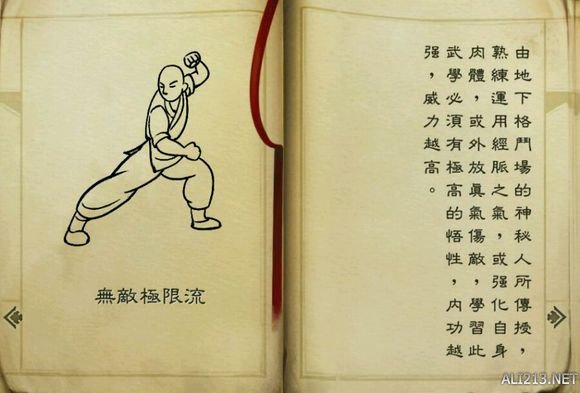 無敵極限流
由地下格鬥場的神秘人所傳授，
熟練運用經脈之氣，或强化自身
肉體，或外放真氣傷敵，學習此
武學必須有極高的悟性，內功越
强，威力越高。
ALI213.NET